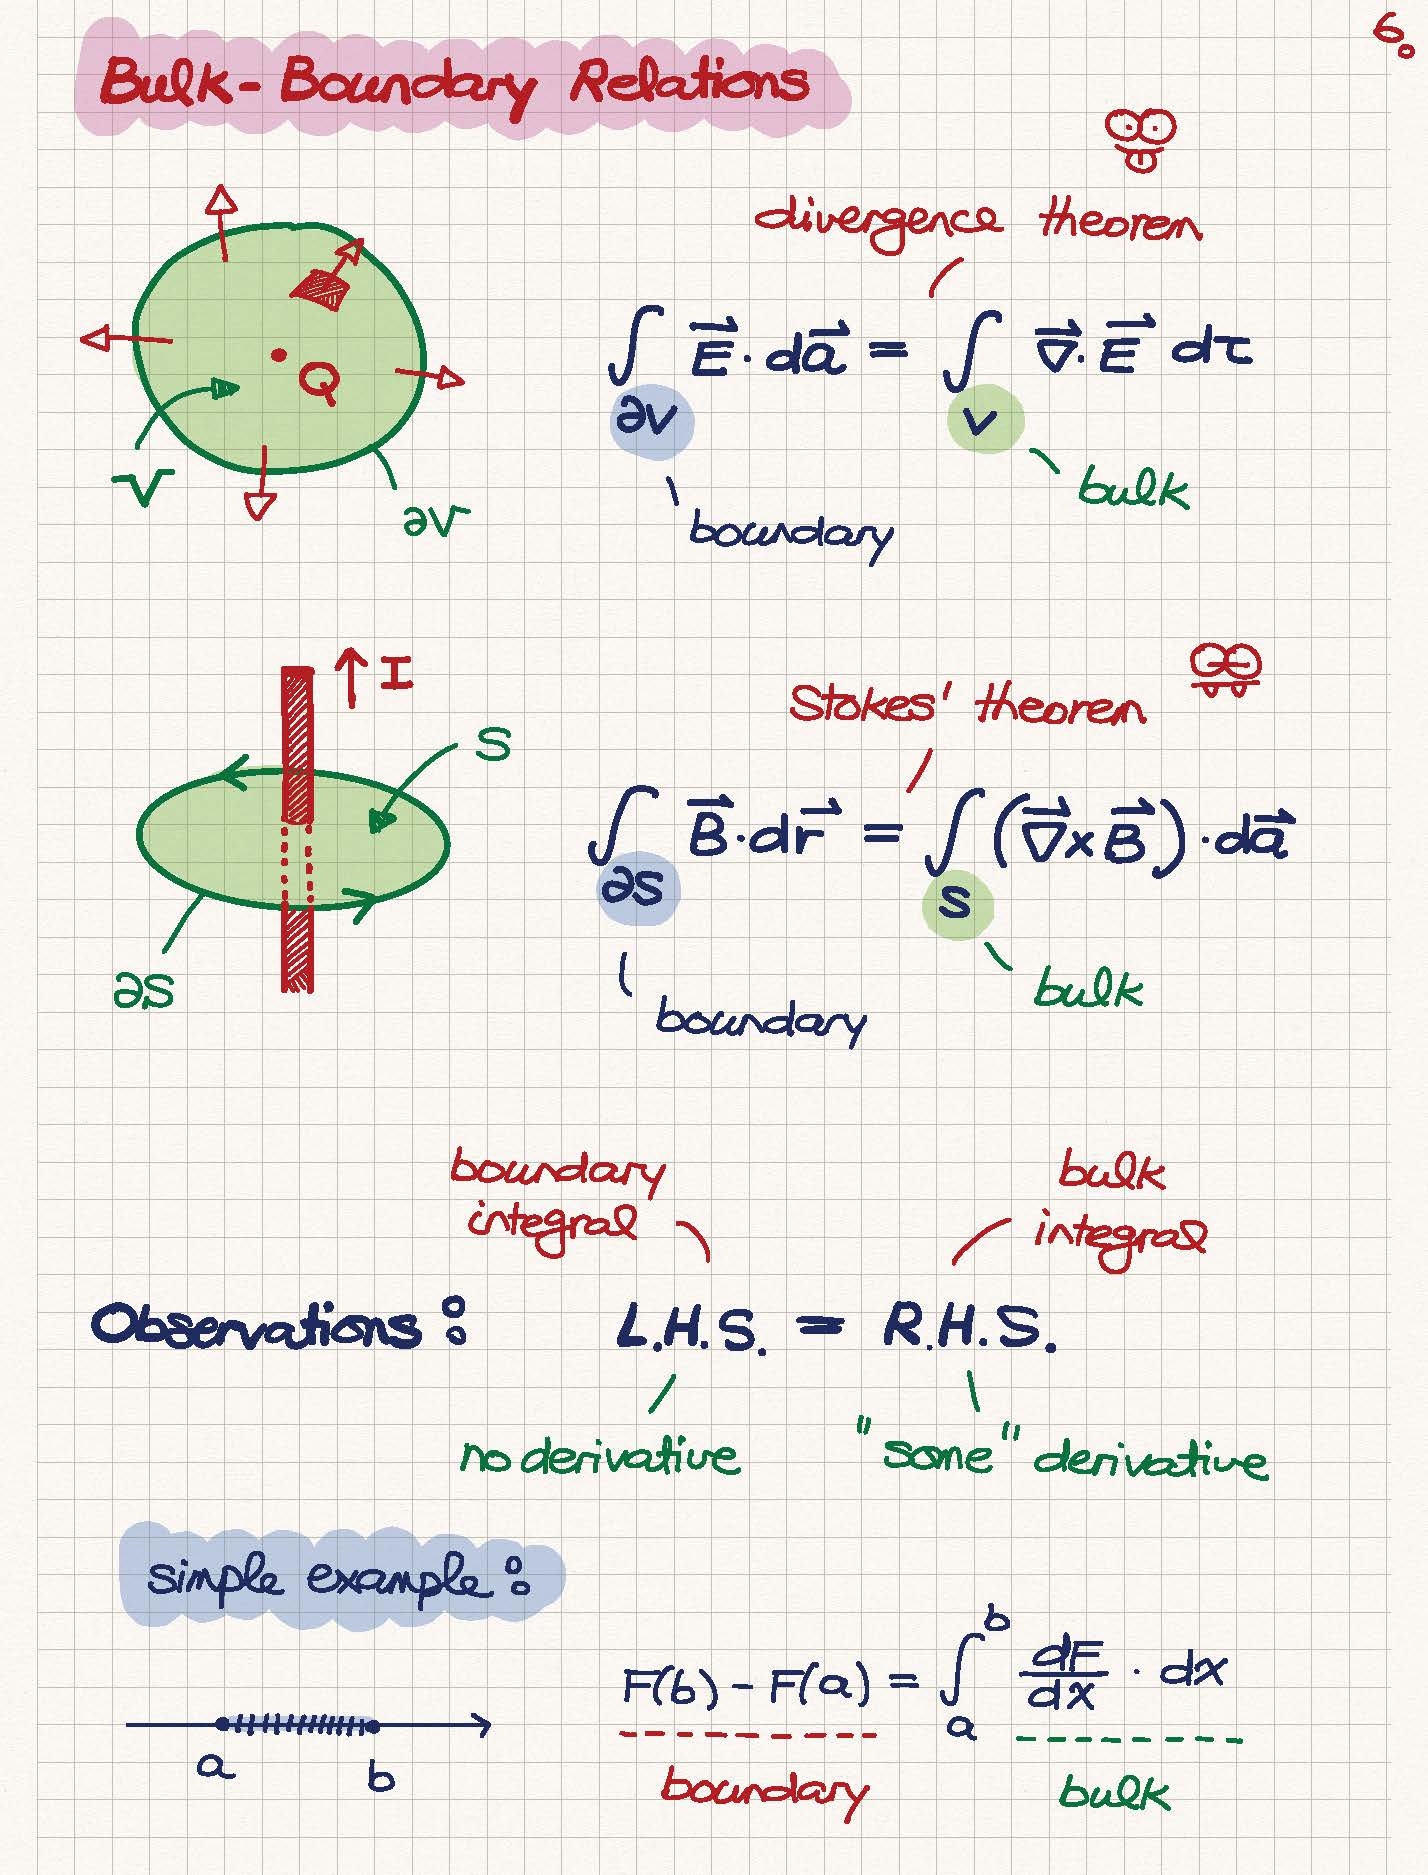 6.
Bulk-Boundary Relations
divergence theorem
Q
V
∂V
∫_∂V E⃗ · da⃗ = ∫_V ∇⃗ · E⃗ dτ
boundary
bulk
I
S
∂S
Stokes' theorem
∫_∂S B⃗ · dr⃗ = ∫_S (∇⃗ × B⃗) · da⃗
boundary
bulk
boundary
integral
bulk
integral
Observations: L.H.S. = R.H.S.
no derivative
"some" derivative
simple example:
a
b
F(b) - F(a) = ∫_a^b dF/dx · dx
boundary
bulk